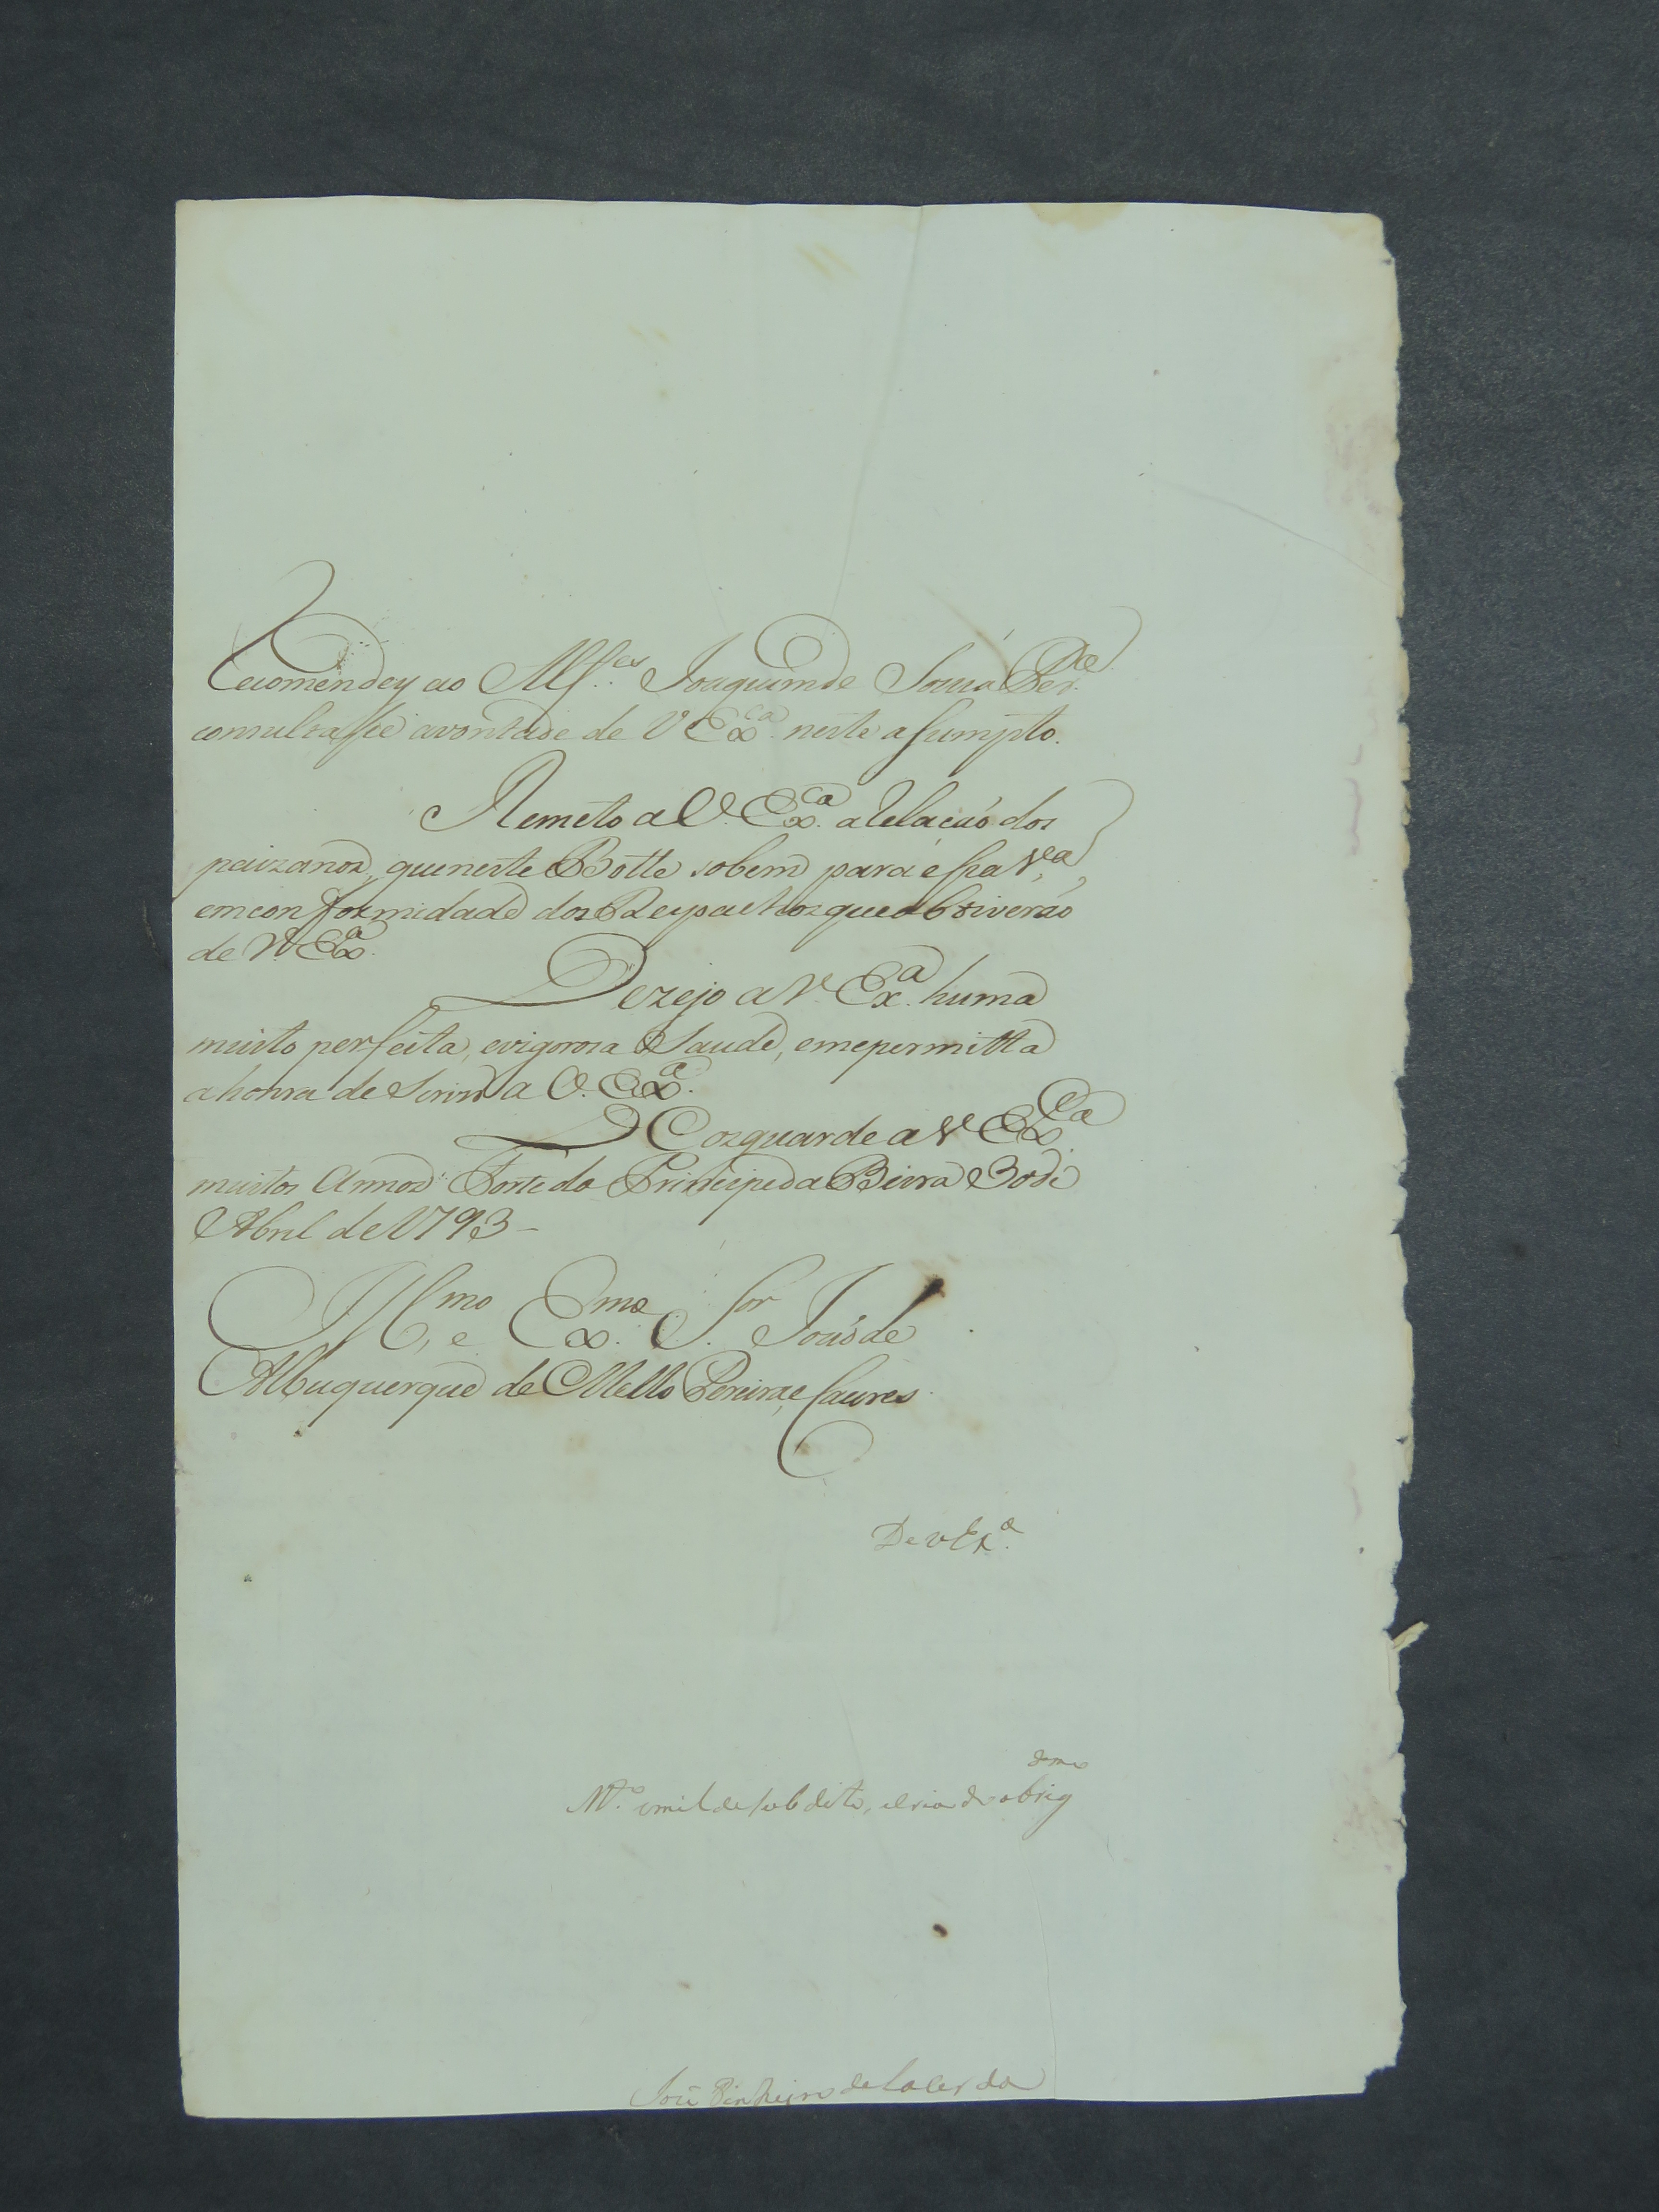 Recomendey ao Alf.es Joaquim de Souza Per.ra
consultasse avontade de V Ex.ca neste assumpto.
Remeto a V. Ex.ca a Relacaó dos
paizanos, que neste Botte sobem para essa V.a,
em conformidade dos Despachos que obtiverão
de V. Ex.a
Dezejo a V. Ex.a huma
muito perfeita, evigoroza Saude, eme permitta
ahonra de Servir a V. Ex.a.
D Eos guarde a V Ex.ca
muitos Annos Forte do Principe da Beira 30 de
Abril de 1793 -
Ill.mo e Ex.mo S.or Joaó de
Albuquerque de Mello Pereira, e Caceres
De V Ex.a
M.to umilde subdito, e criado obrig.dmo
José Pinheiro de Lacerda